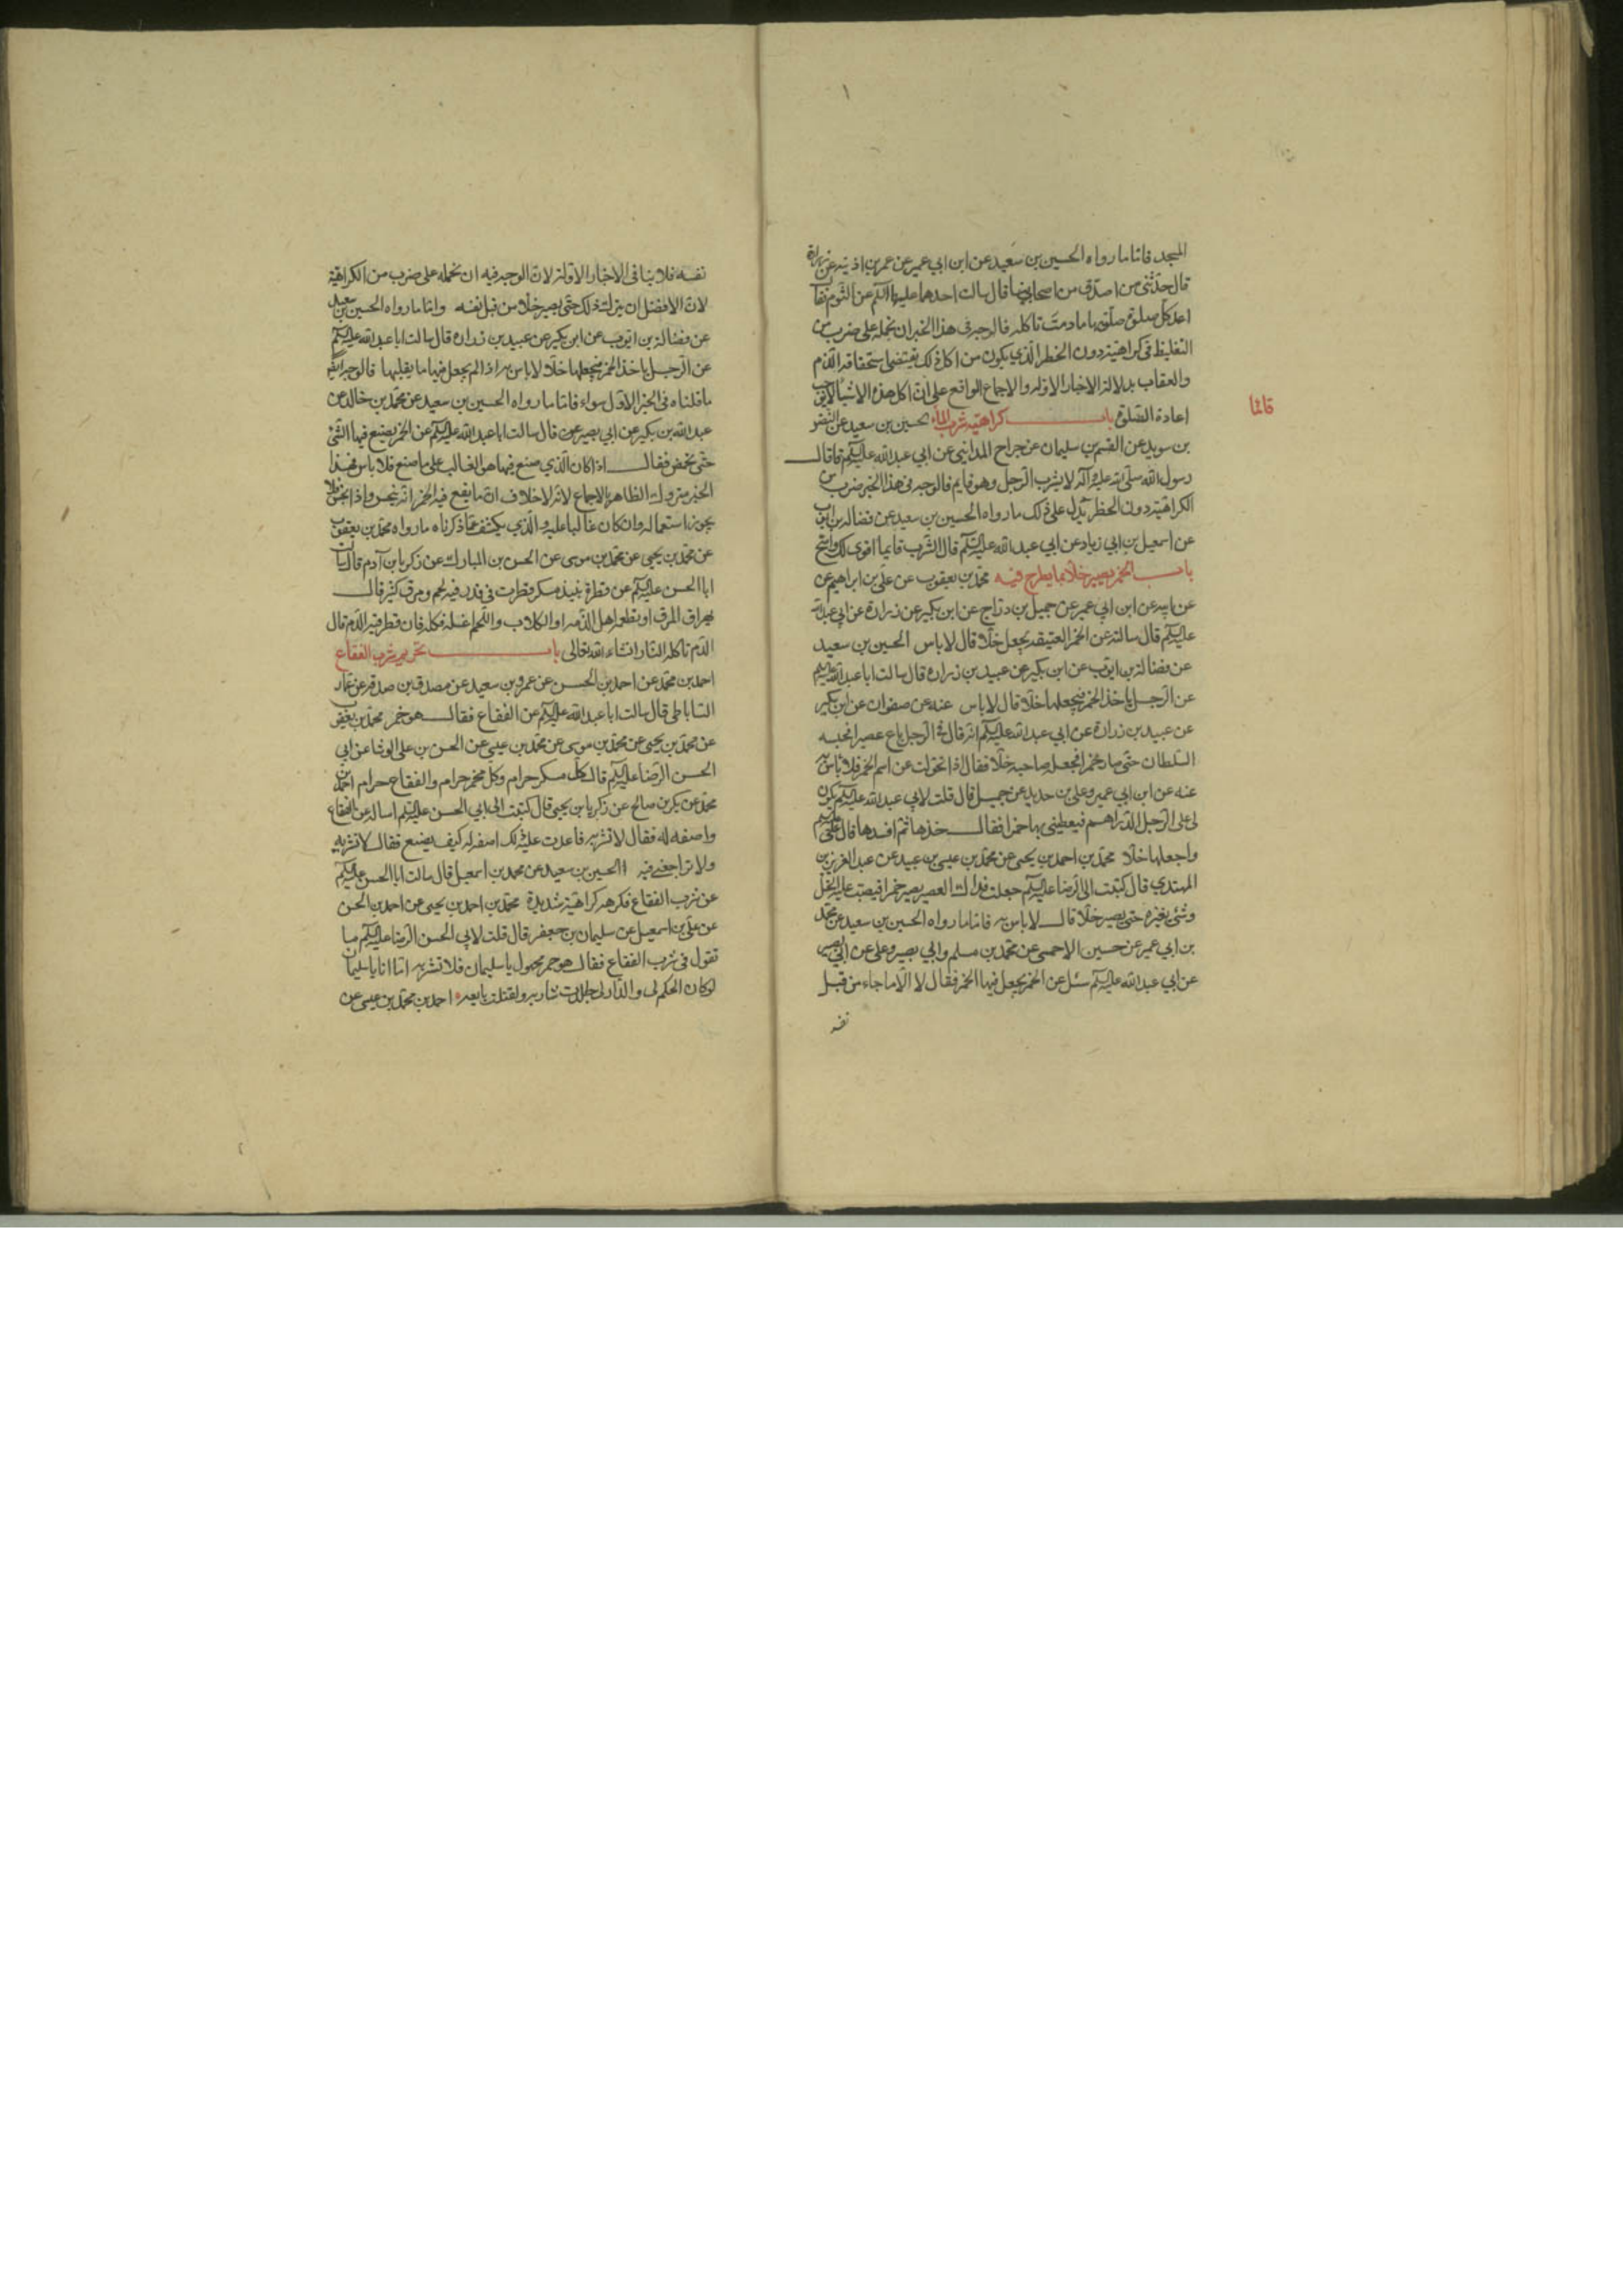 المسجد فاما ما رواه الحسين بن سعيد عن ابن ابي عمير عن عمر بن اذينه عن زرارة
قال حدثنى من اصدق من اصحابنا قال سالت احدهما عليهما السلم عن الثوم فقال
اعد كل صلوة صليتها ما دمت تاكله فالوجه فى هذا الخبر ان نحمله على ضرب من
التغليظ فى كراهيته دون الحظر الذي يكون من اكل ذلك يقتضى استحقاقه الذم
والعقاب بدلالة الاخبار الاوله والاجماع الواقع على ان اكل هذه الاشياء لا يوجب
اعادة الصلوة باب كراهية شرب الماء الحسين بن سعيد عن النضر
قائما
بن سويد عن القسم بن سليمان عن جراح المدايني عن ابي عبد الله عليه السلم قال قال
رسول الله صلى الله عليه وآله لا يشرب الرجل وهو قايم فالوجه فى هذا الخبر ضرب من
الكراهية دون الحظر يدل على ذلك ما رواه الحسين بن سعيد عن فضاله بن ايوب
عن اسمعيل بن ابي زياد عن ابي عبد الله عليه السلم قال الشرب قايما اقوى لك واصح
باب الخمر يصير خلا بما يطرح فيه محمد بن يعقوب عن على بن ابراهيم عن
عن ابيه عن ابن ابي عمير عن جميل بن دراج عن ابن بكير عن زرارة عن ابي عبد الله
عليه السلم قال سالته عن الخمر العتيقه يجعل خلا قال لا باس الحسين بن سعيد
عن فضالة بن ايوب عن ابن بكير عن عبيد بن زراره قال سالت ابا عبد الله عليه السلم
عن الرجل ياخذ الخمر فيجعلها خلا قال لا باس عنه عن صفوان عن ابن بكير
عن عبيد بن زرارة عن ابي عبد الله عليه السلم انه قال فى الرجل باع عصيرا فحبسه
السلطان حتى صار خمرا فجعله صاحبه خلا فقال اذا تحولت عن اسم الخمر فلا باس به
عنه عن ابن ابي عمير وعلى بن حديد عن جميل قال قلت لابي عبد الله عليه السلم يكون
لى على الرجل الدراهم فيعطينى بها خمرا فقال خذها ثم افسدها قال على
واجعلها خلا محمد بن احمد بن يحيى عن محمد بن عيسى بن عبيد عن عبد العزيز بن
المهتدي قال كتبت الى الرضا عليه السلم جعلت فداك العصير يصير خمرا فيصب عليه الخل
وشئ يغيره حتى يصير خلا قال لا باس به فاما ما رواه الحسين بن سعيد عن محمد
بن ابي عمير عن حسين الاحمسى عن محمد بن مسلم وابي بصير وعلى عن ابي بصير
عن ابي عبد الله عليه السلم سئل عن الخمر يجعل فيها الخمر فقال لا الا ما جاء من قبل
نفسه
نفسه فلا ينافى الاخبار الاولة لان الوجه فيه ان نحمله على ضرب من الكراهية
لان الافضل ان يترك ذلك حتى يصير خلا من قبل نفسه واما ما رواه الحسين بن سعيد
عن فضالة بن ايوب عن ابن بكير عن عبيد بن زراره قال سالت ابا عبد الله عليه السلم
عن الرجل ياخذ الخمر فيجعلها خلا لا باس به اذا لم يجعل فيها ما يقلبها فالوجه ايضا
ما قلناه فى الخبر الاول سواء فاما ما رواه الحسين بن سعيد عن محمد بن خالد عن
عبد الله بن بكير عن ابي بصير عن قال سالت ابا عبد الله عليه السلم عن الخمر يصنع فيها الشئ
حتى تحمض فقال اذا كان الذي صنع فيها هو الغالب على ما صنع فلا باس فهذا
الخبر متروك الظاهر بالاجماع لانه لا خلاف ان ما يقع فيه الخمر انه ينجس واذا نجس فلا
يجوز استعماله وان كان غالبا عليه والذي يكشف عما ذكرناه ما رواه محمد بن يعقوب
عن محمد بن يحيى عن محمد بن موسى عن الحسن بن المبارك عن زكريا بن آدم قال سالت
ابا الحسن عليه السلم عن قطرة نبيذ مسكر قطرت فى قدر فيه لحم ومرق كثير قال
يهراق المرق او يطعمه اهل الذمه او الكلاب واللحم اغسله فكله فان قطر فيه الدم قال
الدم تاكله النار انشاء الله تعالى باب تحريم شرب الفقاع
احمد بن محمد عن احمد بن الحسن عن عمرو بن سعيد عن مصدق بن صدقه عن عمار
الساباطى قال سالت ابا عبد الله عليه السلم عن الفقاع فقال هو خمر محمد بن يعقوب
عن محمد بن يحيى عن محمد بن موسى عن محمد بن عيسى عن الحسن بن على الوشا عن ابي
الحسن الرضا عليه السلم قال كل مسكر حرام وكل مخمر حرام والفقاع حرام احمد بن
محمد عن بكر بن صالح عن زكريا بن يحيى قال كتبت الى ابي الحسن عليه السلم اساله عن الفقاع
واصفه له فقال لا تشربه فاعدت عليه كل ذلك اصفه له كيف يصنع فقال لا تشربه
ولا تراجعنى فيه الحسين بن سعيد عن محمد بن اسمعيل قال سالت ابا الحسن عليه السلم
عن شرب الفقاع فكرهه كراهية شديدة محمد بن احمد بن يحيى عن احمد بن الحسن
عن على بن اسمعيل عن سليمان بن جعفر قال قلت لابي الحسن الرضا عليه السلم ما
تقول فى شرب الفقاع فقال هو خمر مجهول يا سليمان فلا تشربه اما انا يا سليمان
لو كان الحكم لى والدار لى جلدت شاربه ولقتلت بايعه احمد بن محمد بن عيسى عن